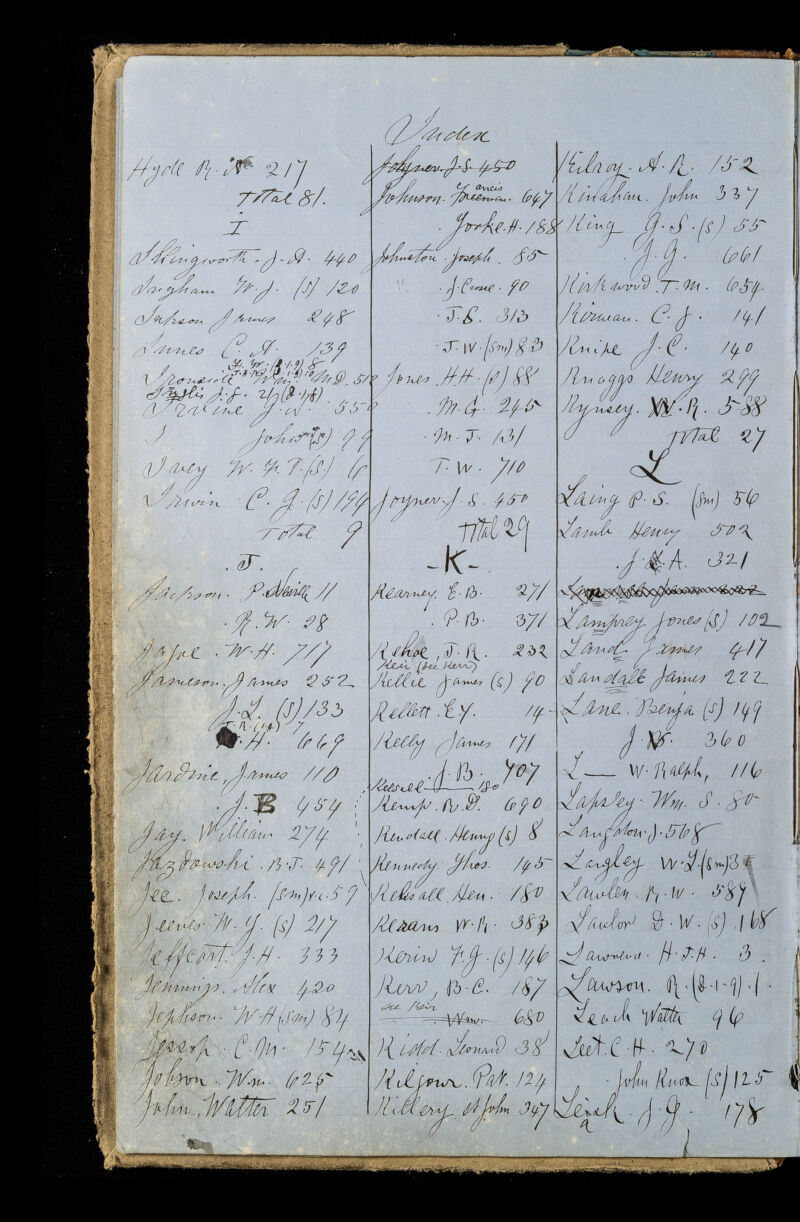 Index
Hyde R. N. 217
Total 81.
I
Illingworth. J. A. 440
Ingham W. J. (S) 120
Inkson James 248
Innes C. A. 139
Ironside Wm. M.D. 512
Irvine J. W. 550
I John (S) 99
Ivey W. F. T. (S.) 6
Irwin C. G. (S) 194
Total 9
. J.
Jackson. P. Neville 11
. R. W. 28
Jagoe. W. H. 717
Jameson. James 252
J. L. (S) 133
. H. 669
Jardine, James 110
. J. B 454
Jay. William 274
Jazdowski. B. J. 491
Jee. Joseph. (Sm) v.c. 59
Jeeves. W. Y. (S) 217
Jeffcoat. J. H. 333
Jennings. Alex 420
Jephson. W. H (Sm) 84
Jessop. C. M. 154
Jobson. Wm. 625
John, Walter 251
Joyner. J. S. 450
Johnson. Francis Freeman. 647
. Yorke. H. 188
Johnston. Joseph. 85
. J. Crosse. 90
. J. S. 313
. J. W. (Sm) 83
Jones. H. H. (S) 88
. M. G. 245
. M. J. 131
T. W. 710
Joyner. J. S. 450
Total 29
-K-
Kearney. E. B. 271
. P. B. 371
Kehoe, J. R. 232
Keir (see Kerr)
Kellie James (S) 90
Kellett. E. Y. 14
Kelly James 171
. J. B. 707
Kelsall 180
Kemp. R. D. 690
Kendall. Henry (S) 8
Kennedy. Thos. 145
Kelsall. Hen. 180
Kerans W. R. 383
Kerin F. G. (S) 146
Kerr, B. C. 187
see Keir
. Wm. 680
Kidd. Leonard 38
Kilgour. Pat. 124
Killery. St John 347
Kilroy. A. R. 152
Kinahan. John 337
King G. S. (S) 55
. J. G. 661
Kirkwood. T. M. 654
Kirwan. C. J. 141
Knipe J. C. 140
Knaggs Henry 299
Kynsey. W. R. 588
Total 27
L
Laing P. S. (Sm) 56
Lamb Henry 502
. J. A. 321
Lamprey Jones (S) 102
Land. James 417
Landale James 222
Lane. Benja (S) 149
J. 360
L — W. Ralph, 116
Lapsley. Wm. S. 80
Langston. J. 568
Langley W. L. (Sm) 3
Lawler. R. W. 589
Lawlor D. W. (S). 168
Lawrence. H. J. H. 3.
Lawson. R. (D.1.9). 1.
Leach Walter 96
Leet. C. H. 270
. John Knox (S) 125
Leask. J. G. 178